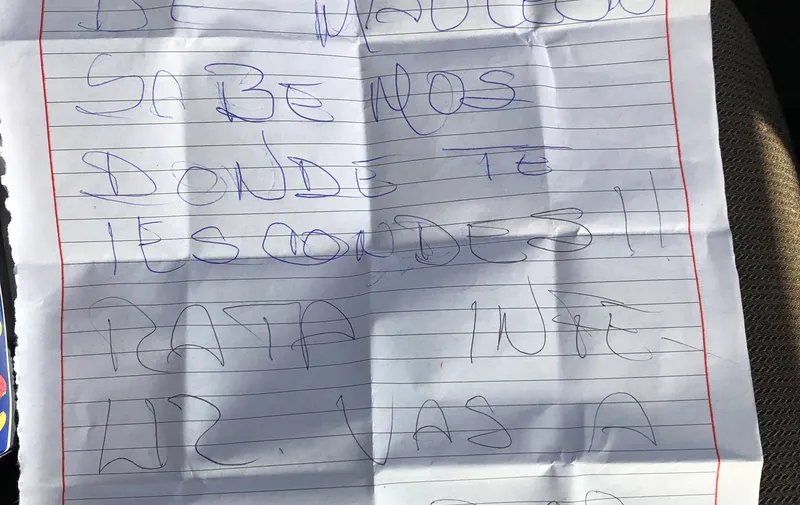 DE MADURO
SABEMOS
DONDE TE
IESCONDES!!
RATA INFE-
LIZ. VAS A